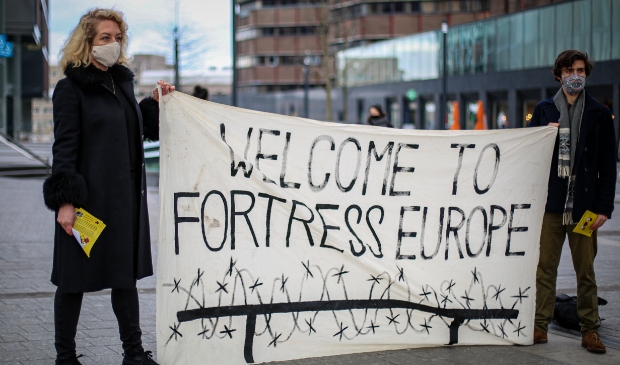 WELCOME TO
FORTRESS EUROPE